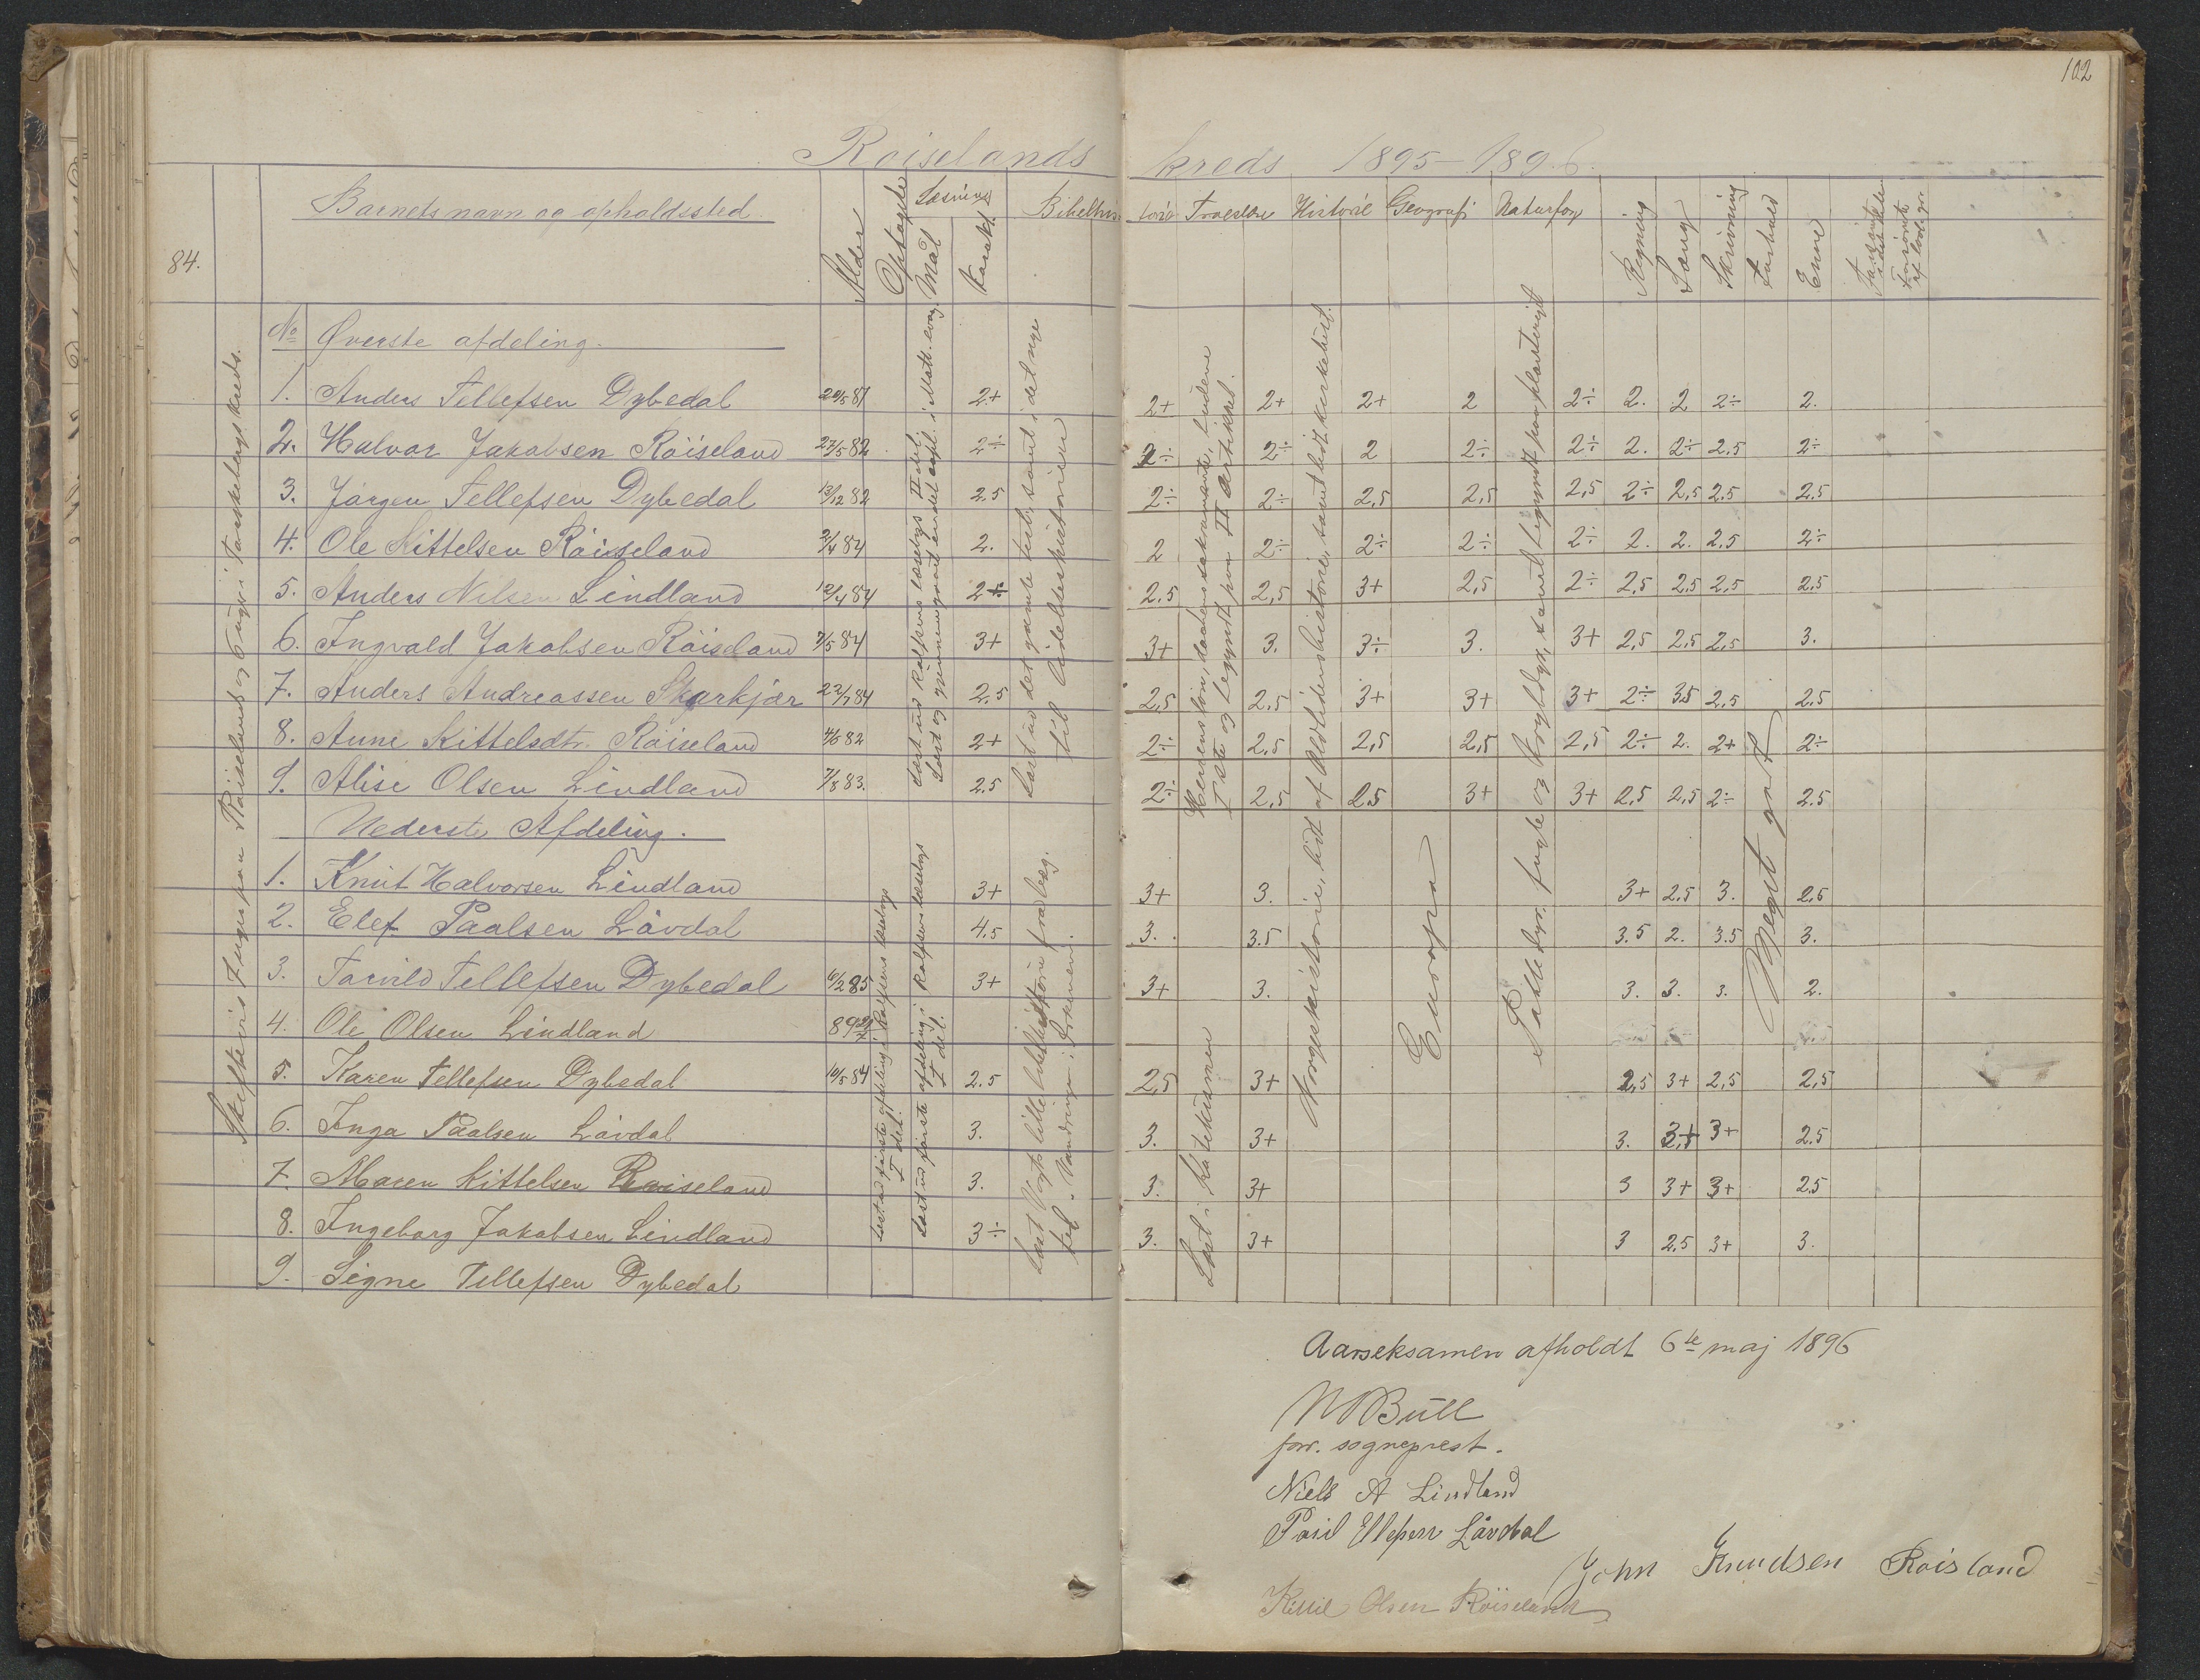 102
Roiselands kreds 1895-1896.
84.
Barnets navn og opholdssted. Alder Optagelse Læsning Mål Karakt. Bibelhistorie Troeslære Historie Geografi Naturfag Regning Sang Skrivning Forhold Evne Forsømte
Skiftevis 2 uger paa Röiseland og 6 uger i kreds.
No Øverste afdeling.
1. Anders Tellefsen Dybedal 20/5 81 2+ 2+ 2+ 2+ 2 2÷ 2. 2 2÷ 2.
2. Halvor Jakobsen Röiseland 27/5 82 2÷ 2÷ 2÷ 2 2÷ 2÷ 2. 2÷ 2.5 2÷
3. Jørgen Tellefsen Dybedal 13/12 82 2.5 2÷ 2÷ 2,5 2,5 2,5 2÷ 2,5 2.5 2.5
4. Ole Kittelsen Röiseland 2/4 84 2. 2 2÷ 2÷ 2÷ 2÷ 2. 2. 2.5 2÷
5. Anders Nilsen Lindland 12/4 84 2÷ 2.5 2,5 3+ 2,5 2÷ 2,5 2,5 2,5 2.5
6. Ingvald Jakobsen Röiseland 7/5 84 3+ 3+ 3. 3÷ 3. 3+ 2,5 2,5 2,5 3.
7. Anders Andreassen Skarkjær 22/7 84 2.5 2,5 2,5 3+ 3+ 3+ 2÷ 3.5 2.5 2.5
8. Anne Kittelsdtr. Röiseland 4/6 82 2+ 2÷ 2,5 2,5 2,5 2,5 2÷ 2. 2+ 2÷
9. Alise Olsen Lindland 7/8 83. 2.5 2÷ 2,5 2.5 3+ 3+ 2,5 2,5 2÷ 2.5
Læst ud det gamle test. samt i det nye
til Lidelseshistorien
Norgeshistorie, lidt af Oldtidenshistorie, samt lidt kirkehist.
Europa
Pattedyr, fugle og krybdyr, samt begyndt paa planteriget
Meget godt
Nederste Afdeling.
1. Knut Halvorsen Lindland 3+ 3+ 3. 3+ 2.5 3. 2.5
2. Elef Paalsen Lövdal 4.5 3. 3.5 3.5 2. 3.5 3.
3. Torvild Tellefsen Dybedal 6/2 85 3+ 3+ 3. 3. 3. 3. 2.
4. Ole Olsen Lindland
5. Karen Tellefsen Dybedal 10/5 84 2.5 2,5 3+ 2,5 3+ 2,5 2,5
6. Inga Paalsen Lövdal 3. 3. 3+ 3. 3+ 2.5
7. Maren Kittelsen Roiseland 3. 3. 3+ 3 3+ 3+ 2.5
8. Ingeborg Jakobsen Lindland 3÷ 3. 3+ 3 2.5 3+ 3.
9. Signe Tellefsen Dybedal
Læst ud første afdeling i Rolfsens læsebog
I del.
Læst Vogts lille bibelhistorie fra beg.
til Vandringen i Ørkenen.
Læst i katekismen
Aarseksamen afholdt 6te maj 1896
Bull
forr. sogneprest.
Niels A Lindland
Paul Ellefsen Lövdal
John Knudsen Roisland
Kittil Olsen Röiseland